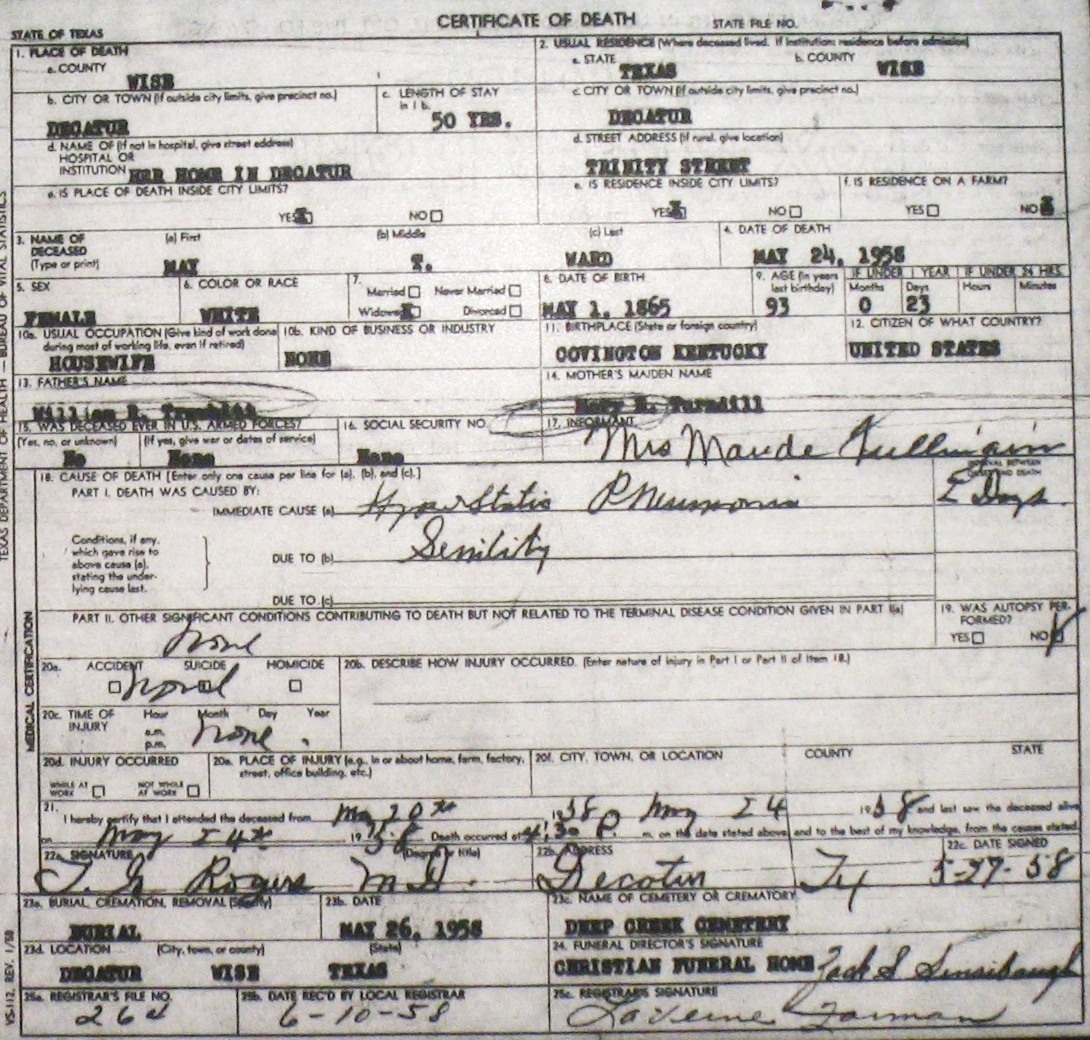 CERTIFICATE OF DEATH
STATE OF TEXAS
STATE FILE NO.
1. PLACE OF DEATH
a. COUNTY
WISE
2. USUAL RESIDENCE (Where deceased lived. If institution: residence before admission)
a. STATE
TEXAS
b. COUNTY
WISE
b. CITY OR TOWN (If outside city limits, give precinct no.)
DECATUR
c. LENGTH OF STAY
in 1 b.
50 YRS.
c. CITY OR TOWN (If outside city limits, give precinct no.)
DECATUR
d. NAME OF (If not in hospital, give street address)
HOSPITAL OR
INSTITUTION HER HOME IN DECATUR
d. STREET ADDRESS (If rural, give location)
TRINITY STREET
e. IS PLACE OF DEATH INSIDE CITY LIMITS?
YES X NO
e. IS RESIDENCE INSIDE CITY LIMITS?
YES X NO
f. IS RESIDENCE ON A FARM?
YES NO X
3. NAME OF
DECEASED
(Type or print)
(a) First
MAY
(b) Middle
T.
(c) Last
WARD
4. DATE OF DEATH
MAY 24, 1958
5. SEX
FEMALE
6. COLOR OR RACE
WHITE
7.
Married Never Married
Widowed X Divorced
8. DATE OF BIRTH
MAY 1, 1865
9. AGE (In years
last birthday)
93
IF UNDER 1 YEAR
Months Days
0 23
IF UNDER 24 HRS.
Hours Minutes
10a. USUAL OCCUPATION (Give kind of work done
during most of working life, even if retired)
HOUSEWIFE
10b. KIND OF BUSINESS OR INDUSTRY
NONE
11. BIRTHPLACE (State or foreign country)
COVINGTON KENTUCKY
12. CITIZEN OF WHAT COUNTRY?
UNITED STATES
13. FATHER'S NAME
William
14. MOTHER'S MAIDEN NAME
Mary
15. WAS DECEASED EVER IN U.S. ARMED FORCES?
(Yes, no, or unknown) (If yes, give war or dates of service)
No None
16. SOCIAL SECURITY NO.
None
17. INFORMANT
Mrs Maude
18. CAUSE OF DEATH [Enter only one cause per line for (a), (b), and (c).]
PART I. DEATH WAS CAUSED BY:
IMMEDIATE CAUSE (a) HypoStatic Pneumonia
INTERVAL BETWEEN
ONSET AND DEATH
Days
Conditions, if any,
which gave rise to
above cause (a),
stating the under-
lying cause last.
DUE TO (b) Senility
DUE TO (c)
PART II. OTHER SIGNIFICANT CONDITIONS CONTRIBUTING TO DEATH BUT NOT RELATED TO THE TERMINAL DISEASE CONDITION GIVEN IN PART I(a)
None
19. WAS AUTOPSY PER-
FORMED?
YES NO
MEDICAL CERTIFICATION
20a. ACCIDENT SUICIDE HOMICIDE
20b. DESCRIBE HOW INJURY OCCURRED. (Enter nature of injury in Part I or Part II of Item 18.)
20c. TIME OF
INJURY
Hour Month Day Year
a.m.
p.m.
None
20d. INJURY OCCURRED
WHILE AT
WORK
NOT WHILE
AT WORK
20e. PLACE OF INJURY (e.g., in or about home, farm, factory,
street, office building, etc.)
20f. CITY, TOWN, OR LOCATION COUNTY STATE
21.
I hereby certify that I attended the deceased from May 20th 1958 May 24 1958 and last saw the deceased alive
on May 24th 1958. Death occurred at 4:30 P. m. on the date stated above, and to the best of my knowledge, from the causes stated.
22a. SIGNATURE (Degree or title)
Rogers M.D.
22b. ADDRESS
Decatur Tex
22c. DATE SIGNED
5-27-58
23a. BURIAL, CREMATION, REMOVAL (Specify)
BURIAL
23b. DATE
MAY 26, 1958
23c. NAME OF CEMETERY OR CREMATORY
DEEP CREEK CEMETERY
23d. LOCATION (City, town, or county) (State)
DECATUR WISE TEXAS
24. FUNERAL DIRECTOR'S SIGNATURE
CHRISTIAN FUNERAL HOME Jack S Sensibaugh
25a. REGISTRAR'S FILE NO.
25b. DATE REC'D BY LOCAL REGISTRAR
6-10-58
25c. REGISTRAR'S SIGNATURE
LaVerne
TEXAS DEPARTMENT OF HEALTH — BUREAU OF VITAL STATISTICS
VS-112, REV. 1/58